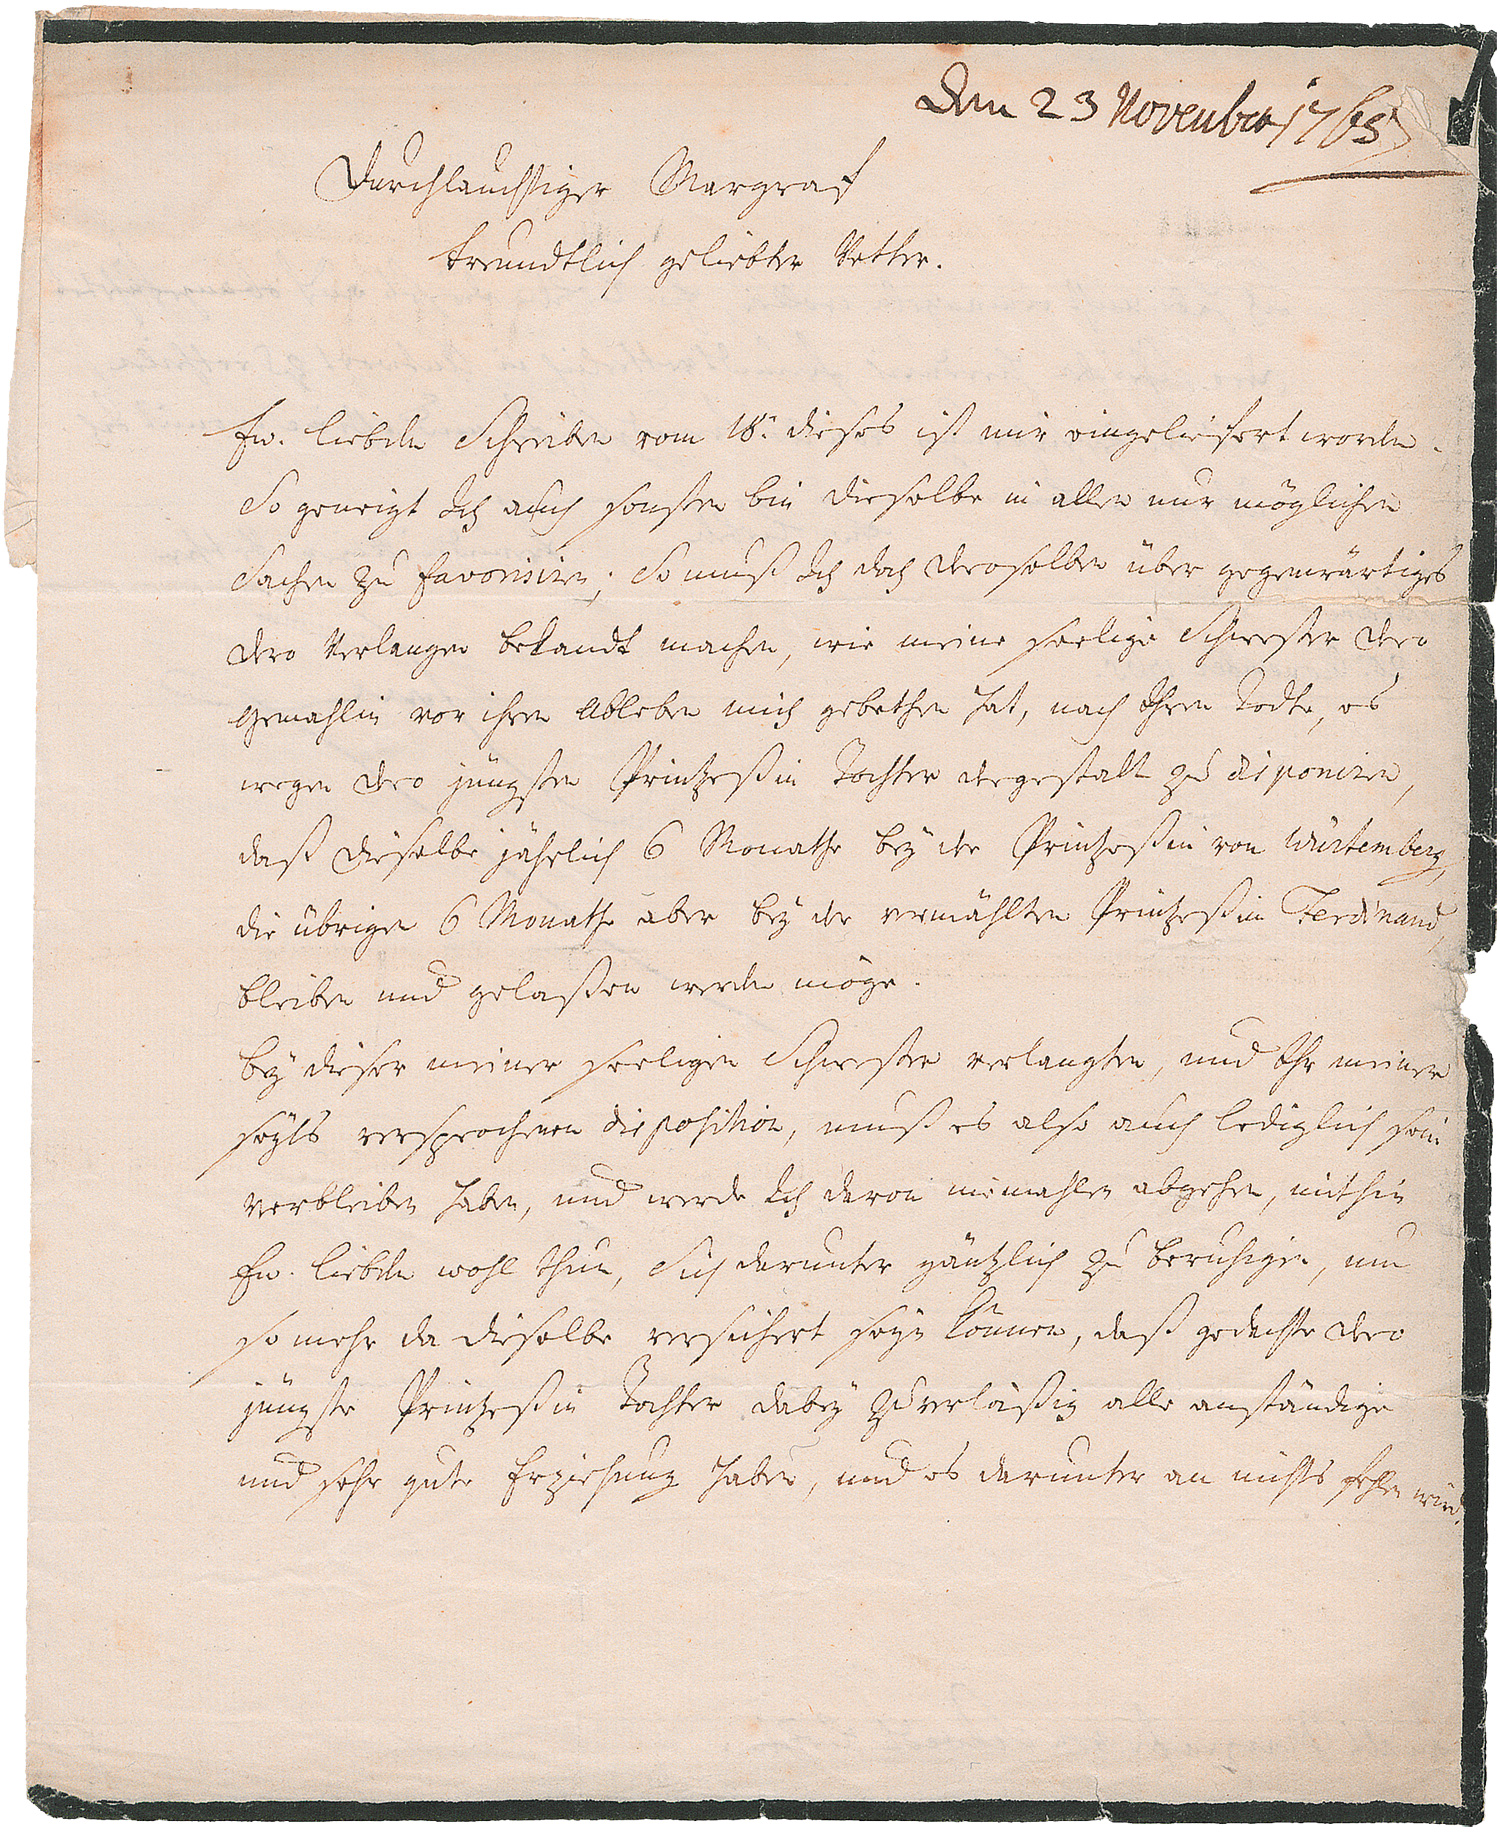 Den 23 November 1765
Durchlauchtiger Margraf
freundtlich geliebter Vetter.
Ew. Liebden Schreiben vom 18t. dieses ist mir eingeliefert worden.
So geneigt Ich auch sonsten bin dieselbe in allen nur möglichen
Sachen zu favorisiren; So muß Ich doch deroselben über gegenwärtiges
dero Verlangen bekandt machen, wie meine seelige Schwester dero
Gemahlin vor ihren Ableben mich gebethen hat, nach Ihren Todte, es
wegen dero jüngsten Printzeßin Tochter dergestalt zu disponiren,
daß dieselbe jährlich 6 Monathe bey der Printzeßin von Würtemberg,
die übrigen 6 Monathe aber bey der vermählten Printzeßin Ferdinand,
bleiben und gelaßen werden möge.
bey dieser meiner seeligen Schwester verlangten, und Ihr meiner
seyts versprochenen disposition, muß es also auch lediglich sein
verbleiben haben, und werde Ich davon niemahlen abgehen, mithin
Ew. Liebden wohl thun, Sich darunter gäntzlich zu beruhigen, um
so mehr da dieselbe versichert seyn können, daß gedachte dero
jüngste Printzeßin Tochter dabey zuverläßig alle anständige
und sehr gute Erziehung haben, und es darunter an nichts fehlen wird.